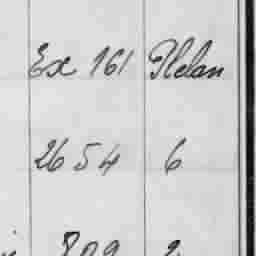 Ex 161 Plelan
2654 6
809 2